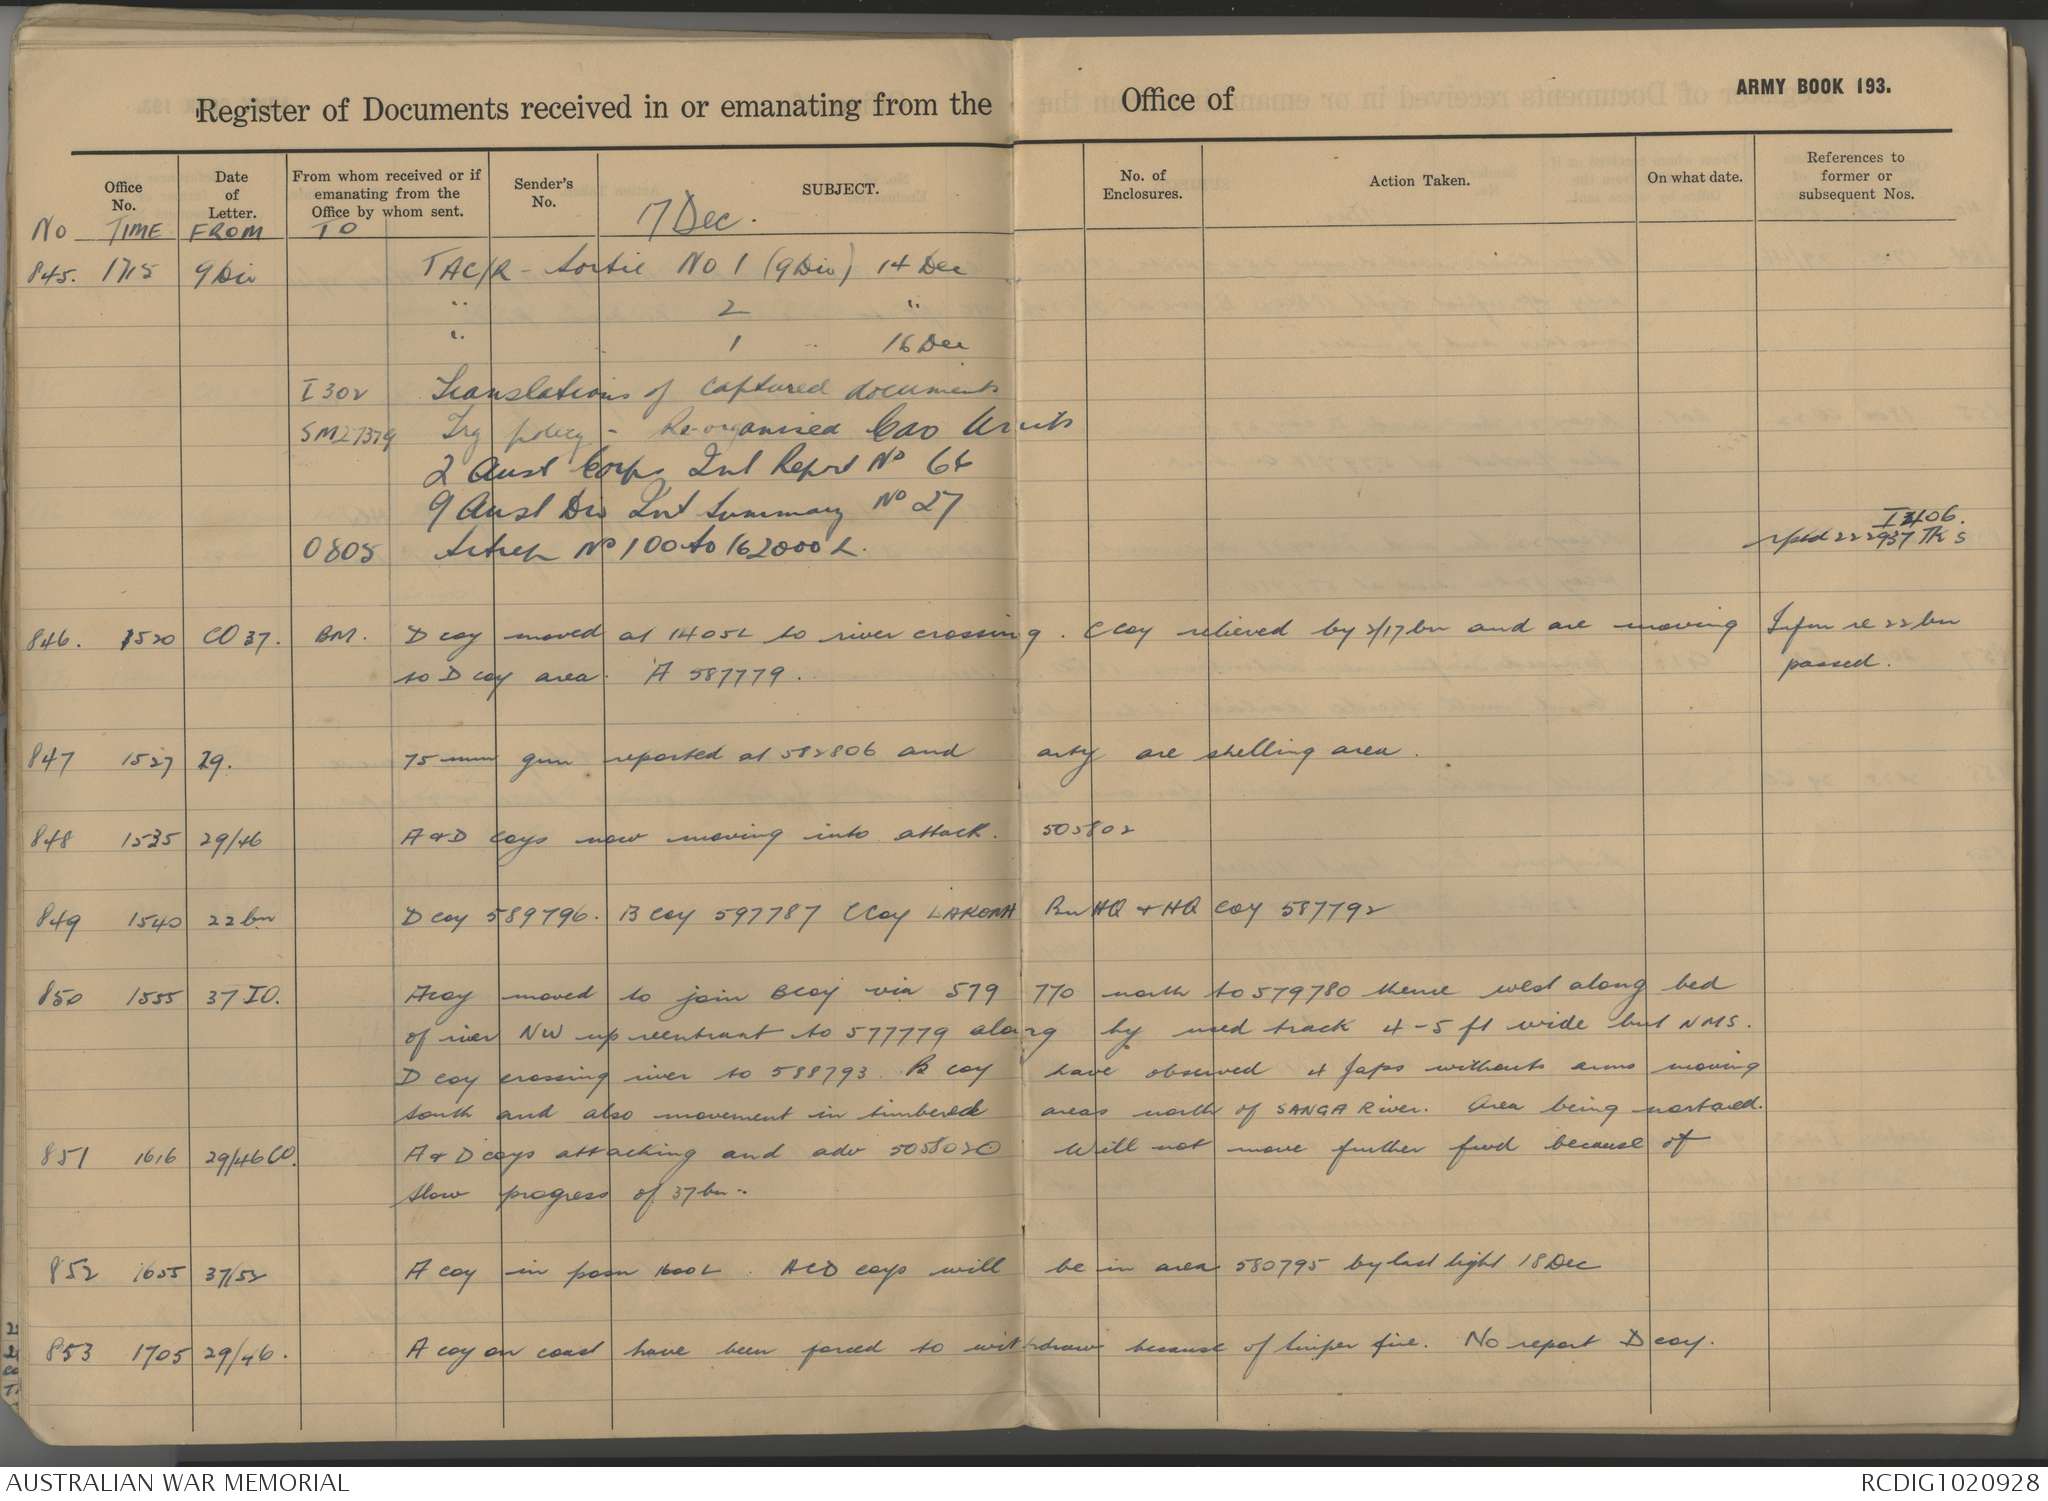 ARMY BOOK 193.
Register of Documents received in or emanating from the Office of
Office No. Date of Letter. From whom received or if emanating from the Office by whom sent. Sender's No. SUBJECT. No. of Enclosures. Action Taken. On what date. References to former or subsequent Nos.
No TIME FROM TO 17 Dec.
845. 1715 9 Div TAC/R - Sortie No 1 (9 Div) 14 Dec
" 2 "
" 1 " 16 Dec
I 302 Translations of captured documents
SM27379 Trg policy - Re-organised Cav Units
2 Aust Corps Int Report No 64
9 Aust Div Int Summary No 27
O805 Sitrep No 100 to 162000L. I 406.
846. 1520 CO 37. BM. D coy moved at 1405L to river crossing. C Coy relieved by 2/17 bn and are moving Infm re 22 bn
to D coy area. A 587779. passed.
847 1527 29. 75 mm gun reported at 582806 and arty are shelling area.
848 1535 29/46 A & D coys now moving into attack. 505802
849 1540 22 bn D coy 589796. B coy 597787 C Coy LAKONA Bn HQ & HQ coy 587792
850 1555 37 IO. A coy moved to join B coy via 579770 north to 579780 thence west along bed
of river NW up reentrant to 577779 along by used track 4-5 ft wide but NMS.
D coy crossing river to 588793. B coy have observed 4 Japs without arms moving
south and also movement in timbered areas north of SANGA River. Area being mortared.
851 1616 29/46 CO. A & D coys attacking and adv 5058020 Will not move further fwd because of
slow progress of 37 bn.
852 1655 37/52 A coy in posn 1600L. ACD coys will be in area 580795 by last light 18 Dec
853 1705 29/46. A coy on coast have been forced to withdraw because of sniper fire. No report D coy.
AUSTRALIAN WAR MEMORIAL RCDIG1020928